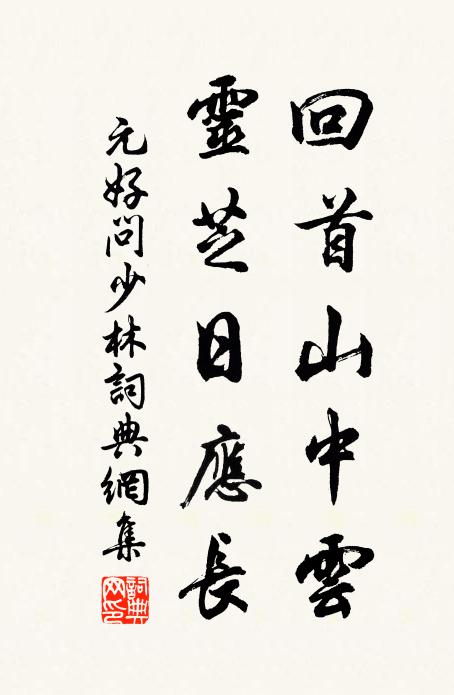 回首山中雲
靈芝日應長
元好問少林詞典網集
詞典網印